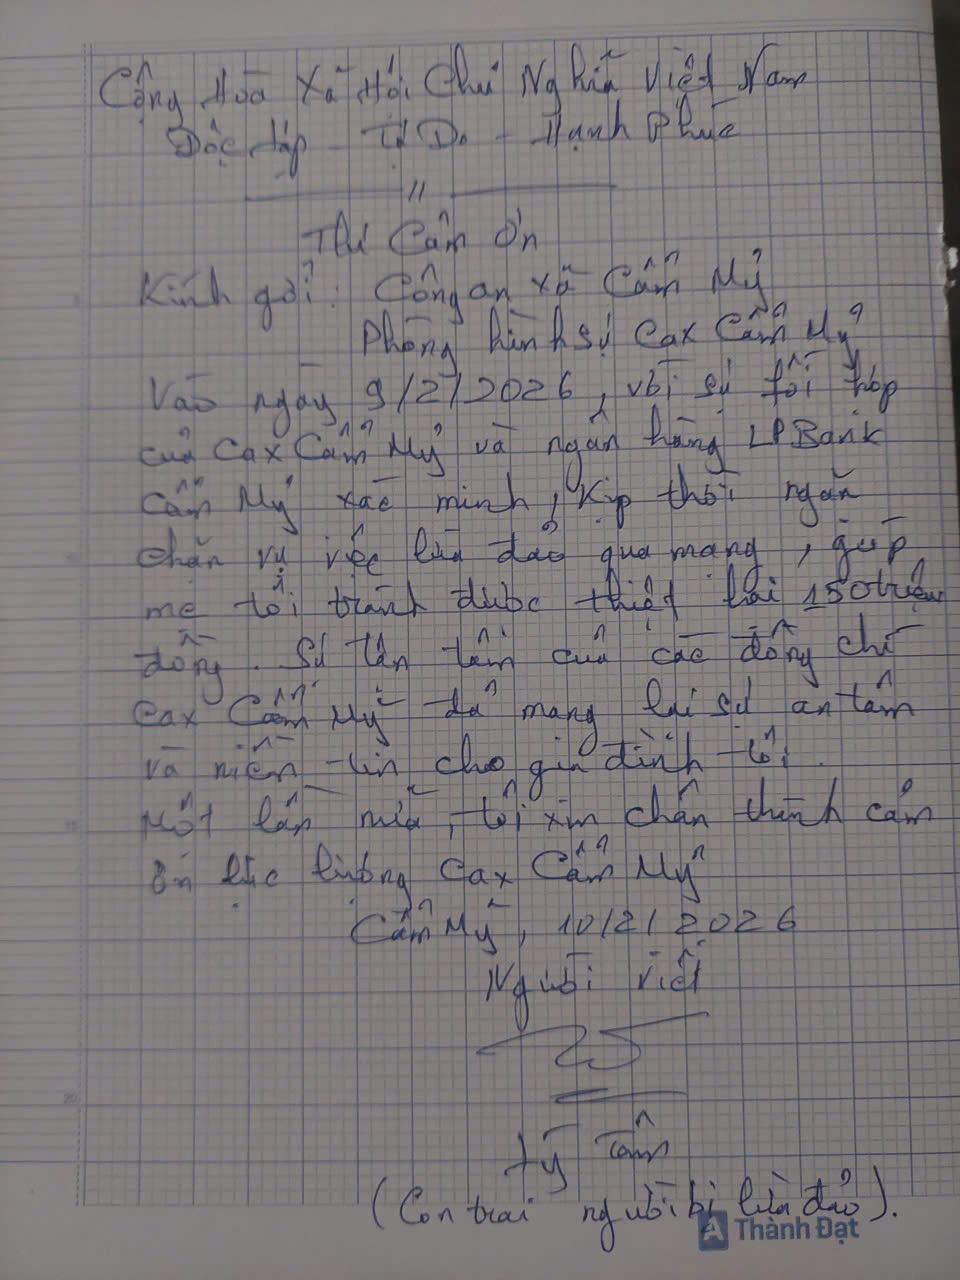 Cộng Hòa Xã Hội Chủ Nghĩa Việt Nam
Độc lập - Tự Do - Hạnh Phúc
Thư Cảm Ơn
Kính gởi: Công an xã Cẩm Mỹ
Phòng hình sự Cax Cẩm Mỹ
Vào ngày 9/2/2026, với sự phối hợp
của Cax Cẩm Mỹ và ngân hàng LPBank
Cẩm Mỹ xác minh, kịp thời ngăn
chặn vụ việc lừa đảo qua mạng, giúp
mẹ tôi tránh được thiệt hại 150 triệu
đồng. Sự tận tâm của các đồng chí
Cax Cẩm Mỹ đã mang lại sự an tâm
và niềm tin cho gia đình tôi.
Một lần nữa, tôi xin chân thành cảm
ơn lực lượng Cax Cẩm Mỹ
Cẩm Mỹ, 10/2/2026
Người viết
Tâm
(Con trai người bị lừa đảo).
A Thành Đạt